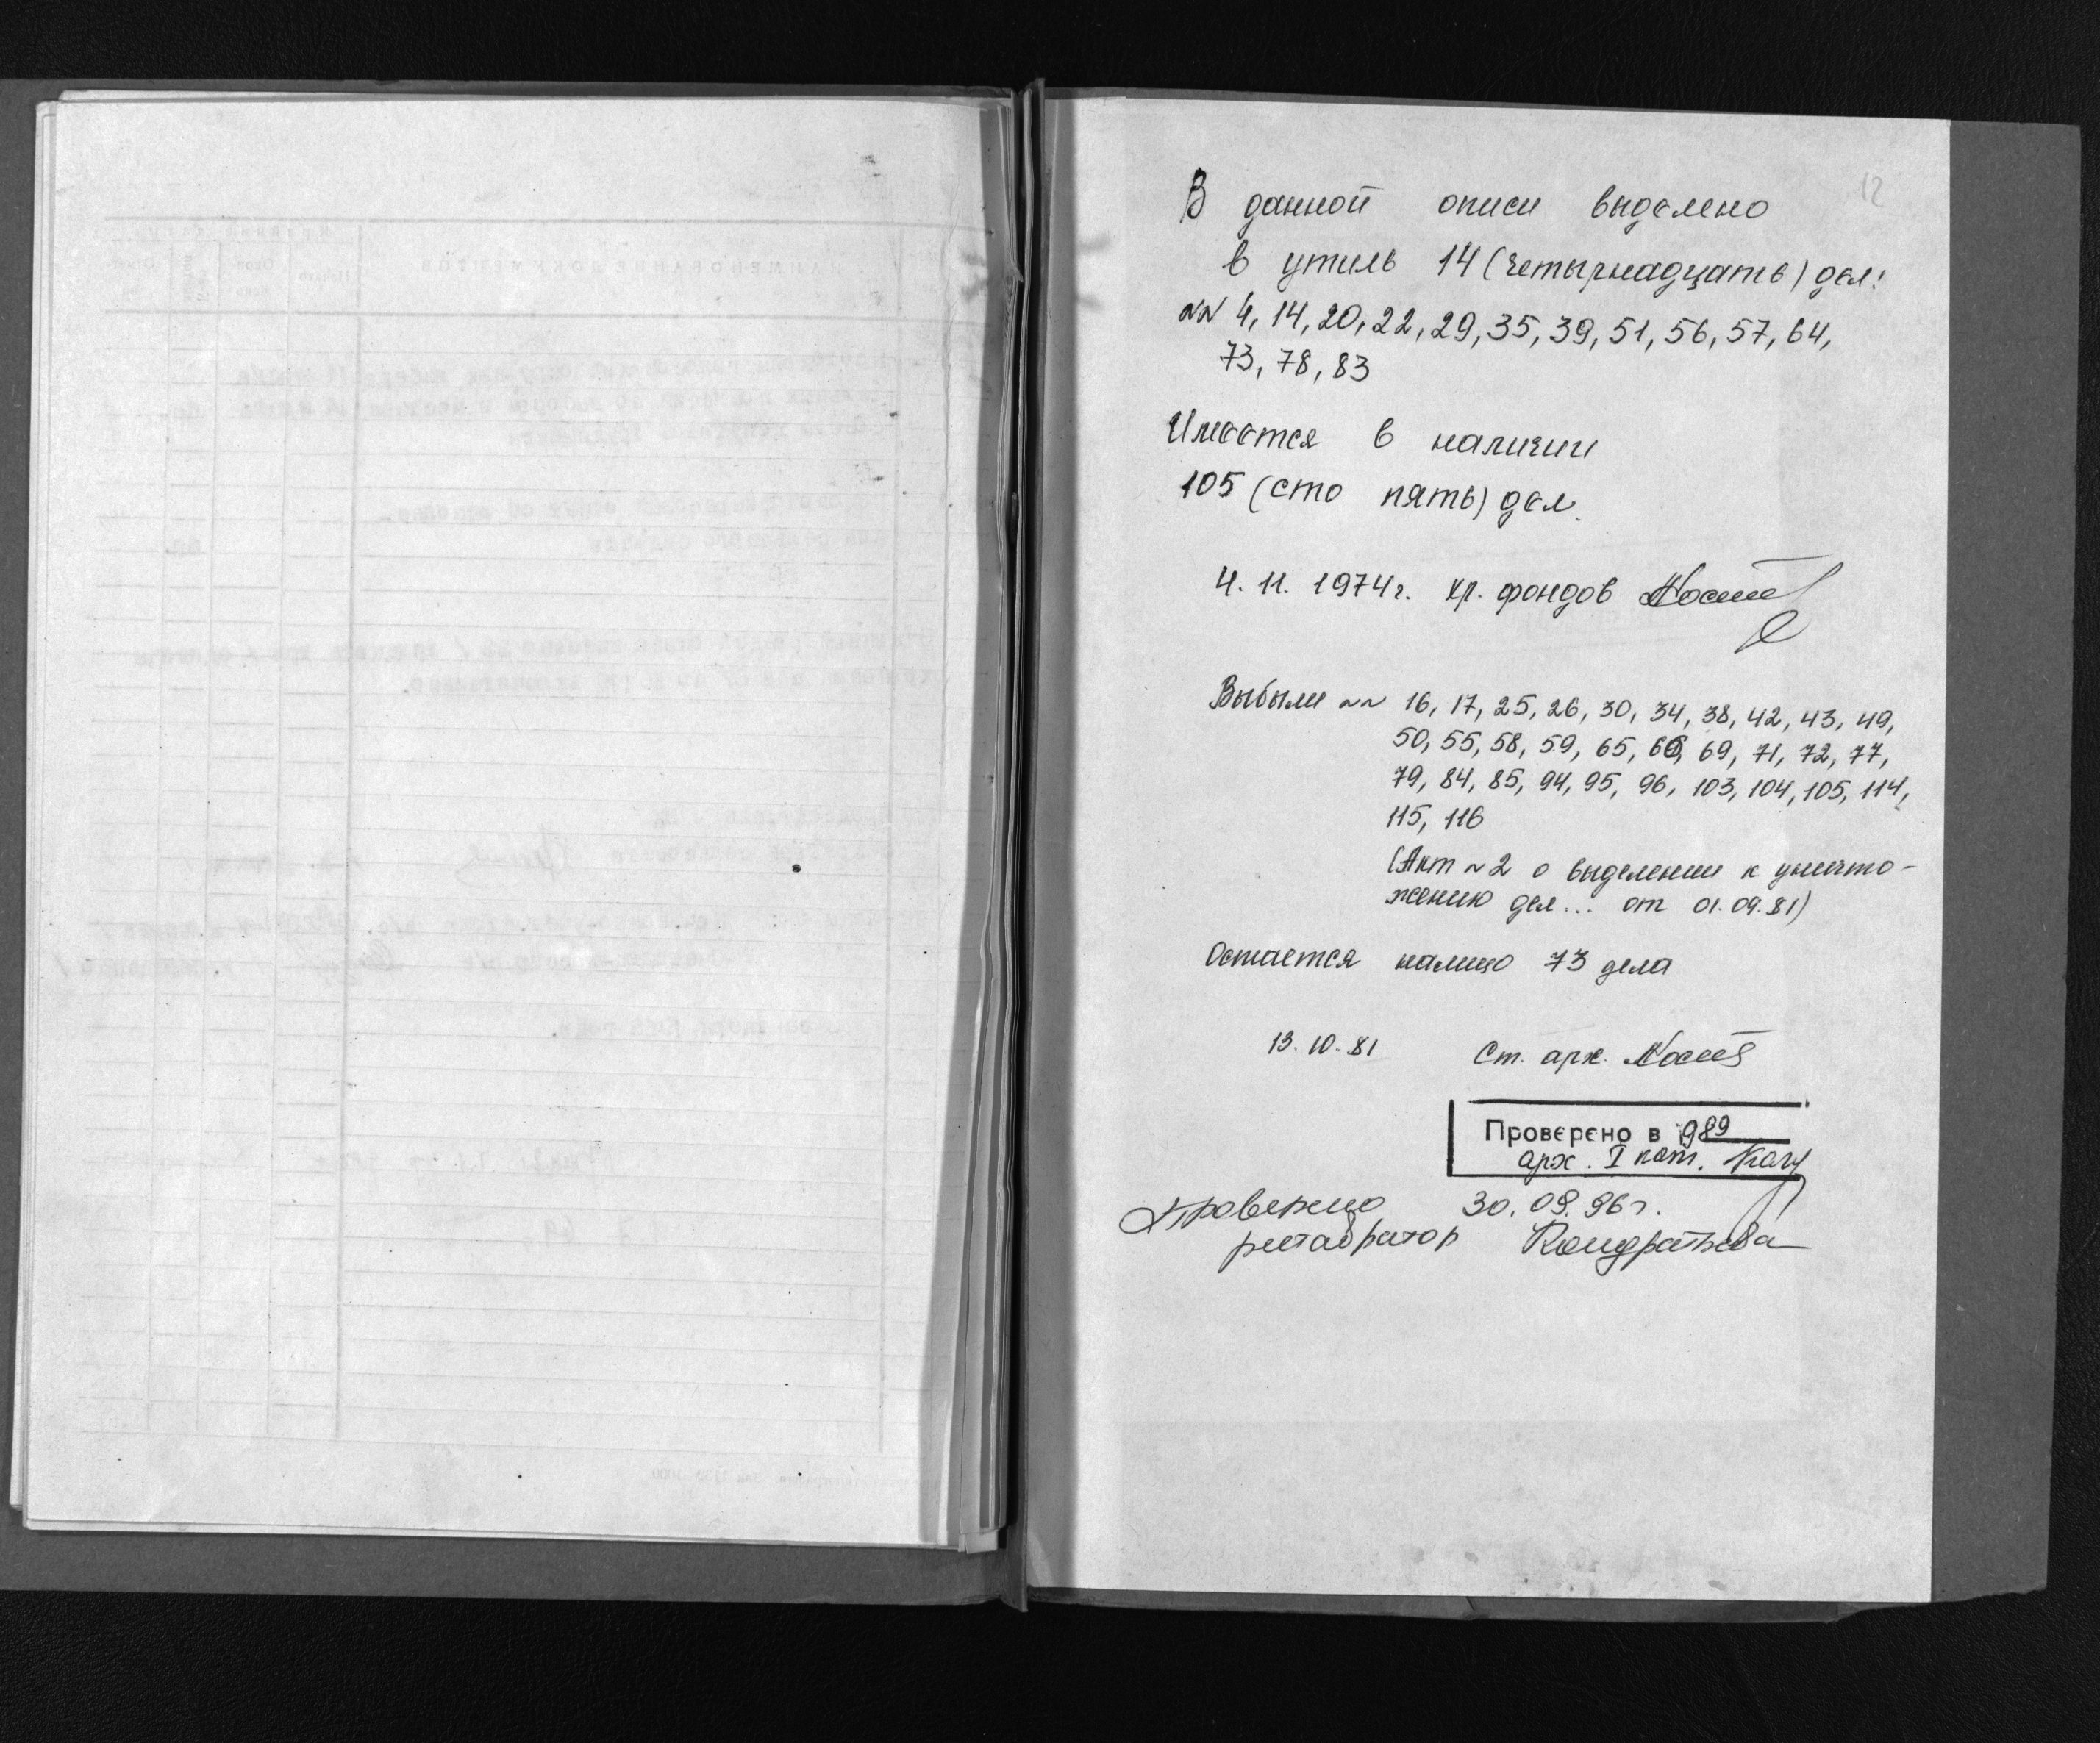 12
В данной описи выделено
в утиль 14 (четырнадцать) дел:
№№ 4, 14, 20, 22, 29, 35, 39, 51, 56, 57, 64,
73, 78, 83
Имеется в наличии
105 (сто пять) дел.
4. 11. 1974 г. хр. фондов
Выбыли №№ 16, 17, 25, 26, 30, 34, 38, 42, 43, 49,
50, 55, 58, 59, 65, 66, 69, 71, 72, 77,
79, 84, 85, 94, 95, 96, 103, 104, 105, 114,
115, 116
(Акт №2 о выделении к уничто-
жению дел... от 01.09.81)
Остается налицо 73 дела
13.10.81 Ст. арх.
Проверено в 1989
арх. I кат.
Проверено 30.09.96 г.
реставратор Кондратьева